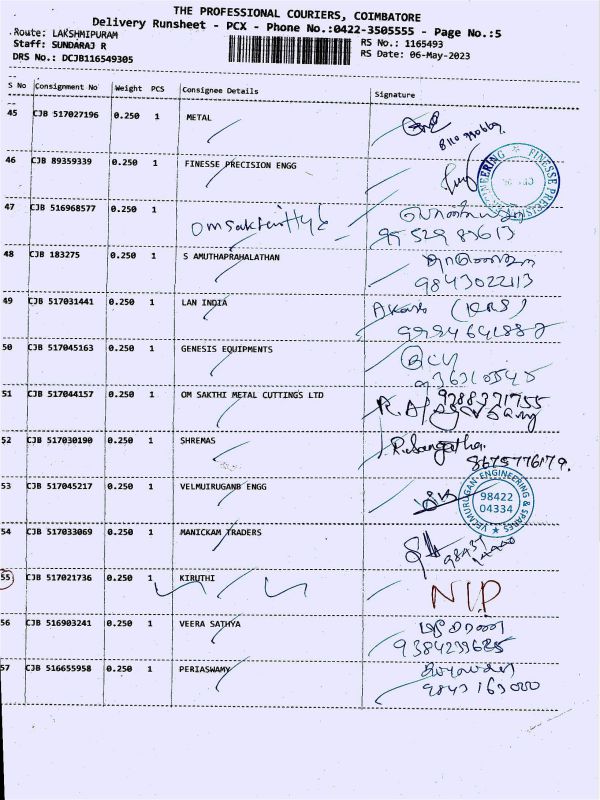 THE PROFESSIONAL COURIERS, COIMBATORE
Delivery Runsheet - PCX - Phone No.:0422-3505555 - Page No.:5
Route: LAKSHMIPURAM
Staff: SUNDARAJ R
RS No.: 1165493
DRS No.: DCJB116549305
RS Date: 06-May-2023
S No Consignment No Weight PCS Consignee Details Signature
45 CJB 517027196 0.250 1 METAL
46 CJB 89359339 0.250 1 FINESSE PRECISION ENGG
47 CJB 516968577 0.250 1 Omsakthi
48 CJB 183275 0.250 1 S AMUTHAPRAHALATHAN
9843022113
49 CJB 517031441 0.250 1 LAN INDIA
50 CJB 517045163 0.250 1 GENESIS EQUIPMENTS
51 CJB 517044157 0.250 1 OM SAKTHI METAL CUTTINGS LTD
52 CJB 517030190 0.250 1 SHREMAS R.Sangatha
8675776179.
53 CJB 517045217 0.250 1 VELMUIRUGANB ENGG
VELMURUGAN ENGINEERING & SPARES
98422
04334
54 CJB 517033069 0.250 1 MANICKAM TRADERS
55 CJB 517021736 0.250 1 KIRUTHI NIP
56 CJB 516903241 0.250 1 VEERA SATHYA
57 CJB 516655958 0.250 1 PERIASWAMY
9843163000